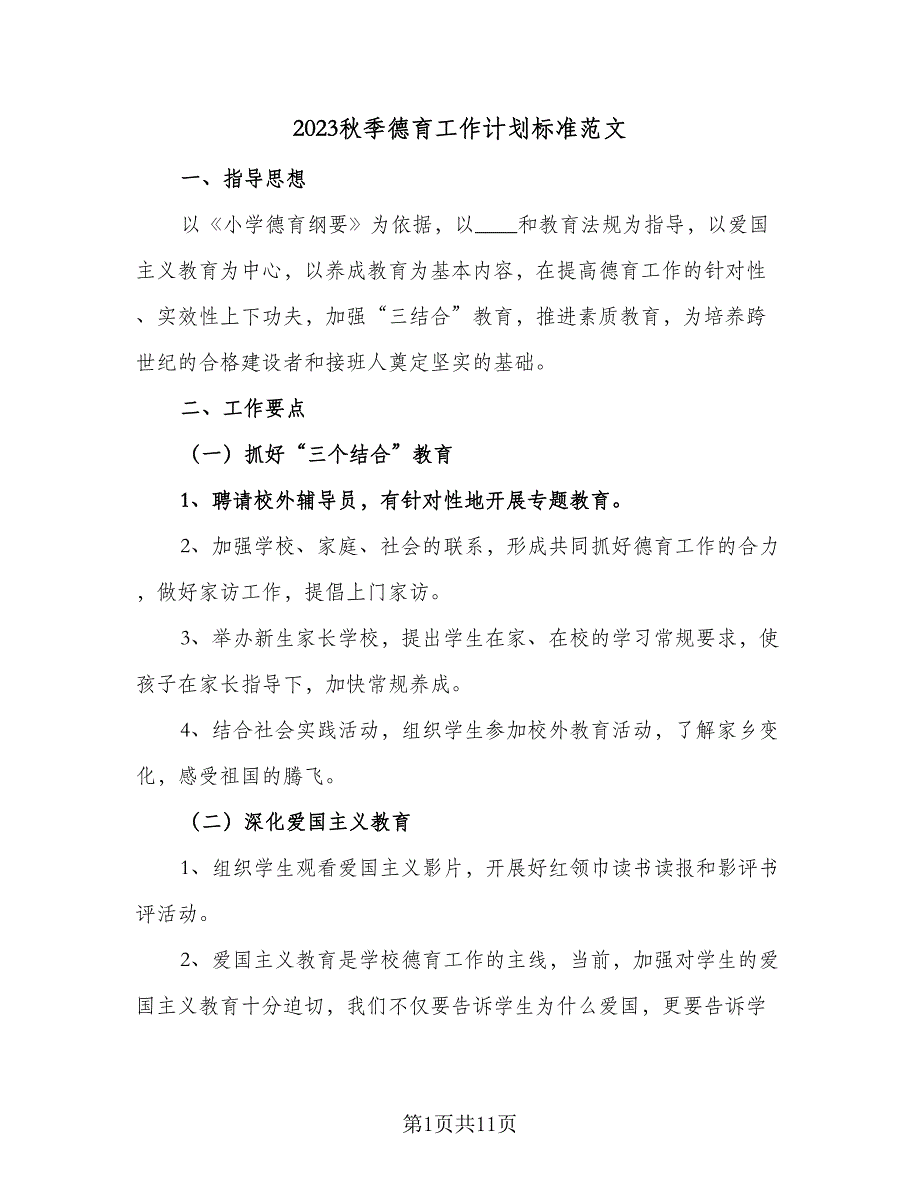 2023秋季德育工作计划标准范文
一、指导思想
以《小学德育纲要》为依据，以____和教育法规为指导，以爱国
主义教育为中心，以养成教育为基本内容，在提高德育工作的针对性
、实效性上下功夫，加强“三结合”教育，推进素质教育，为培养跨
世纪的合格建设者和接班人奠定坚实的基础。
二、工作要点
（一）抓好“三个结合”教育
1、聘请校外辅导员，有针对性地开展专题教育。
2、加强学校、家庭、社会的联系，形成共同抓好德育工作的合力
，做好家访工作，提倡上门家访。
3、举办新生家长学校，提出学生在家、在校的学习常规要求，使
孩子在家长指导下，加快常规养成。
4、结合社会实践活动，组织学生参加校外教育活动，了解家乡变
化，感受祖国的腾飞。
（二）深化爱国主义教育
1、组织学生观看爱国主义影片，开展好红领巾读书读报和影评书
评活动。
2、爱国主义教育是学校德育工作的主线，当前，加强对学生的爱
国主义教育十分迫切，我们不仅要告诉学生为什么爱国，更要告诉学
第1页共11页